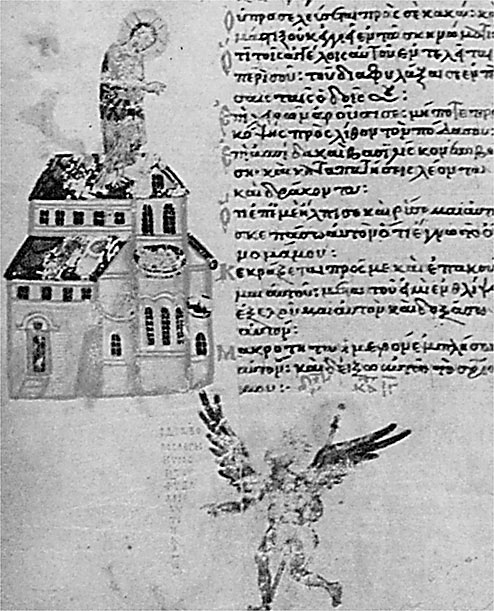 Οὐ προσελεύσεται πρὸς σὲ κακά· κ
μάστιξ οὐκ ἐγγιεῖ ἐν τῶ σκηνώματι
Ὅτι τοῖς ἀγγέλοις αὐτοῦ ἐντελεῖται
περὶ σοῦ· τοῦ διαφυλάξαι σε ἐν πά
σαις ταῖς ὁδοῖς σου:
Ἐπὶ χειρῶν ἀροῦσι σε· μήποτε προσ
κόψης πρὸς λίθον τὸν πόδα σου:
Ἐπὶ ἀσπίδα καὶ βασιλίσκον ἐπιβή
ση· καὶ καταπατήσεις λέοντα
καὶ δράκοντα:
Ὅτι ἐπ' ἐμὲ ἤλπισε καὶ ῥύσομαι αὐτόν
σκεπάσω αὐτὸν ὅτι ἔγνω τὸ ὄ
νομά μου:
Κεκράξεται πρός με καὶ ἐπακού
σομαι αὐτοῦ· μετ' αὐτοῦ εἰμι ἐν θλίψει
ἐξελοῦμαι αὐτὸν καὶ δοξάσω
αὐτόν:
Μακρότητα ἡμερῶν ἐμπλήσω
αὐτόν· καὶ δείξω αὐτῶ τὸ σωτήριόν
μου:-